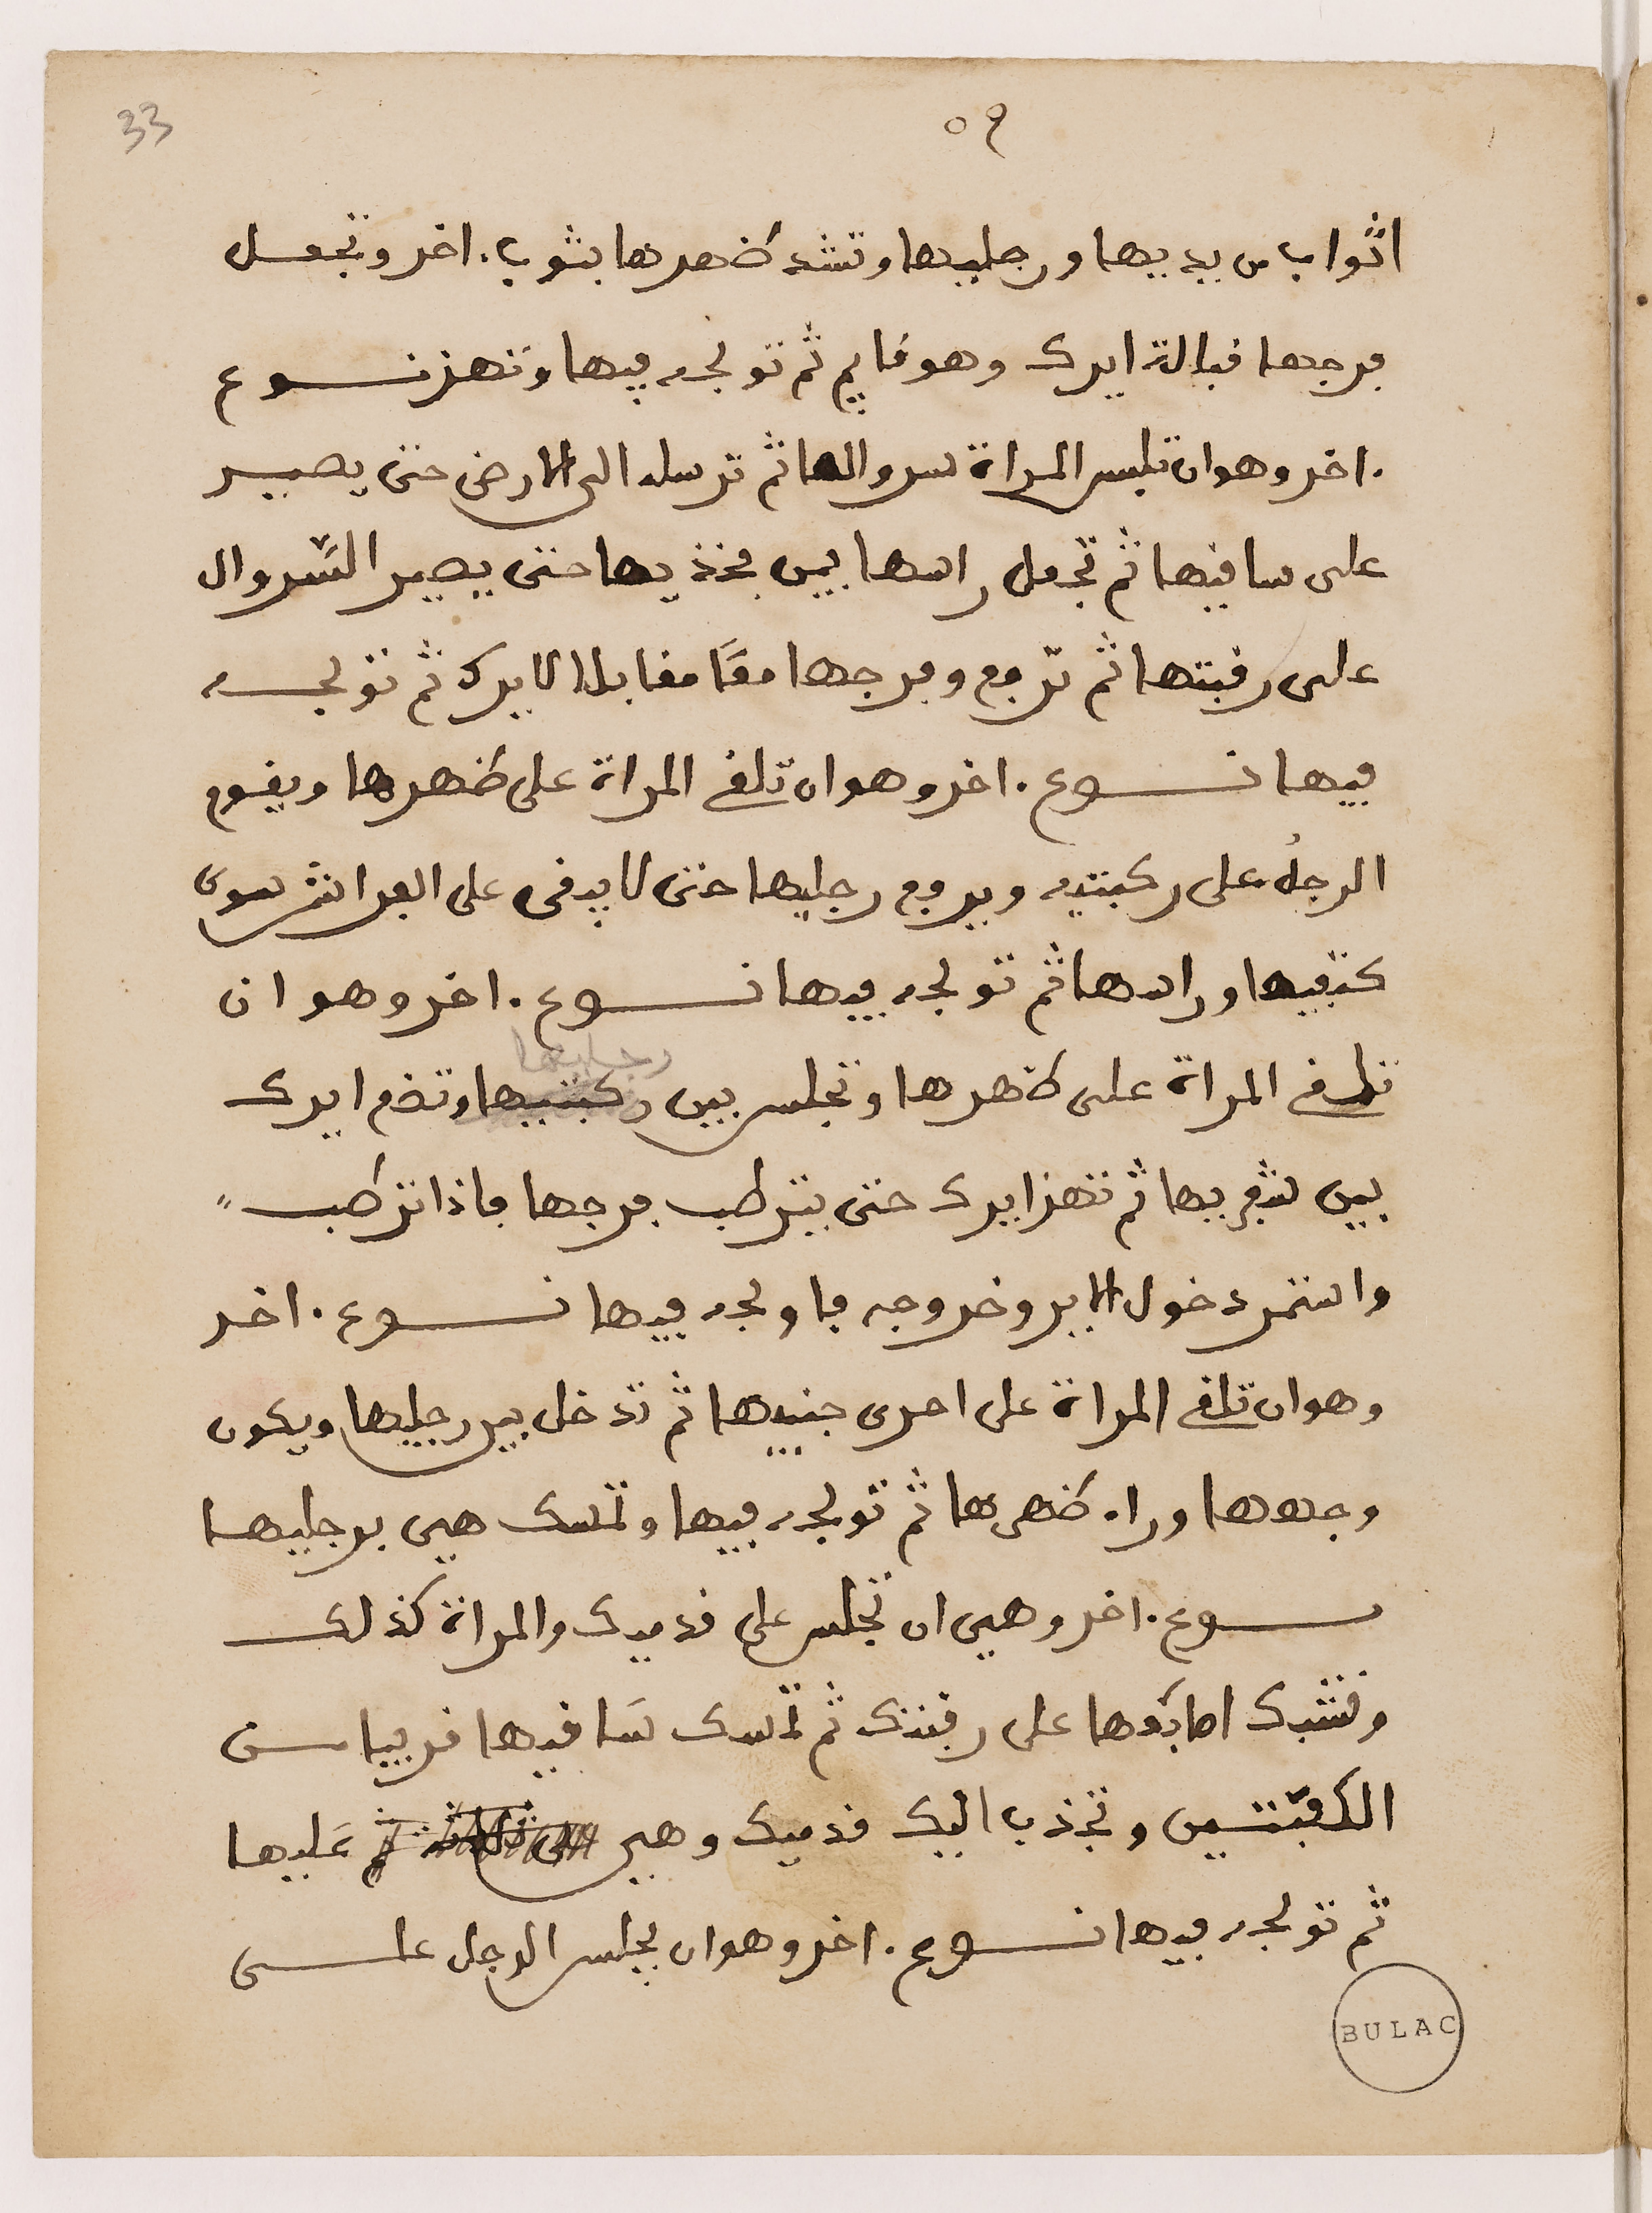 33
٥٩
اثواب من يديها ورجليها وتشد ظهرها بثوب . اخر وتجعل
فرجها قبالة ايرك وهو قايم ثم تولجه فيها وتهز نـــوع
. اخر وهو ان تلبس المراة سروالها ثم ترسله الى الارض حتى يصير
على ساقيها ثم تجعل راسها بين فخذيها حتى يصير السّروال
على رقبتها ثم ترفع وفرجها مقابلا لايرك ثم تولجه
فيها نـــوع . اخر وهو ان تلقى المراة على ظهرها ويقوم
الرجلُ على ركبتيه ويرفع رجليها حتى لا يبقى على الفراش سوى
كتفيها وراسها ثم تولجه فيها نـــوع . اخر وهو ان
رجليها
تلقى المراة على ظهرها وتجلس بين ركبتيها وتضم ايرك
بين شفريها ثم تهز ايرك حتى يترطب فرجها فاذا ترطب
واستمر دخول الاير وخروجه فاولجه فيها نـــوع . اخر
وهو ان تلقى المراة على احدى جنبيها ثم تدخل بين رجليها ويكون
وجهها وراء ظهرها ثم تولجه فيها وتمسك هي برجليها
نـــوع . اخر وهي ان تجلس على قدميك والمراة كذلك
وتشبك اصابعها على رقبتك ثم تمسك سَاقيها قريبا من
الكعبتين وتجذب اليك قدميك وهي عَليها
ثم تولجه فيها نـــوع . اخر وهو ان يجلس الرجل على
BULAC